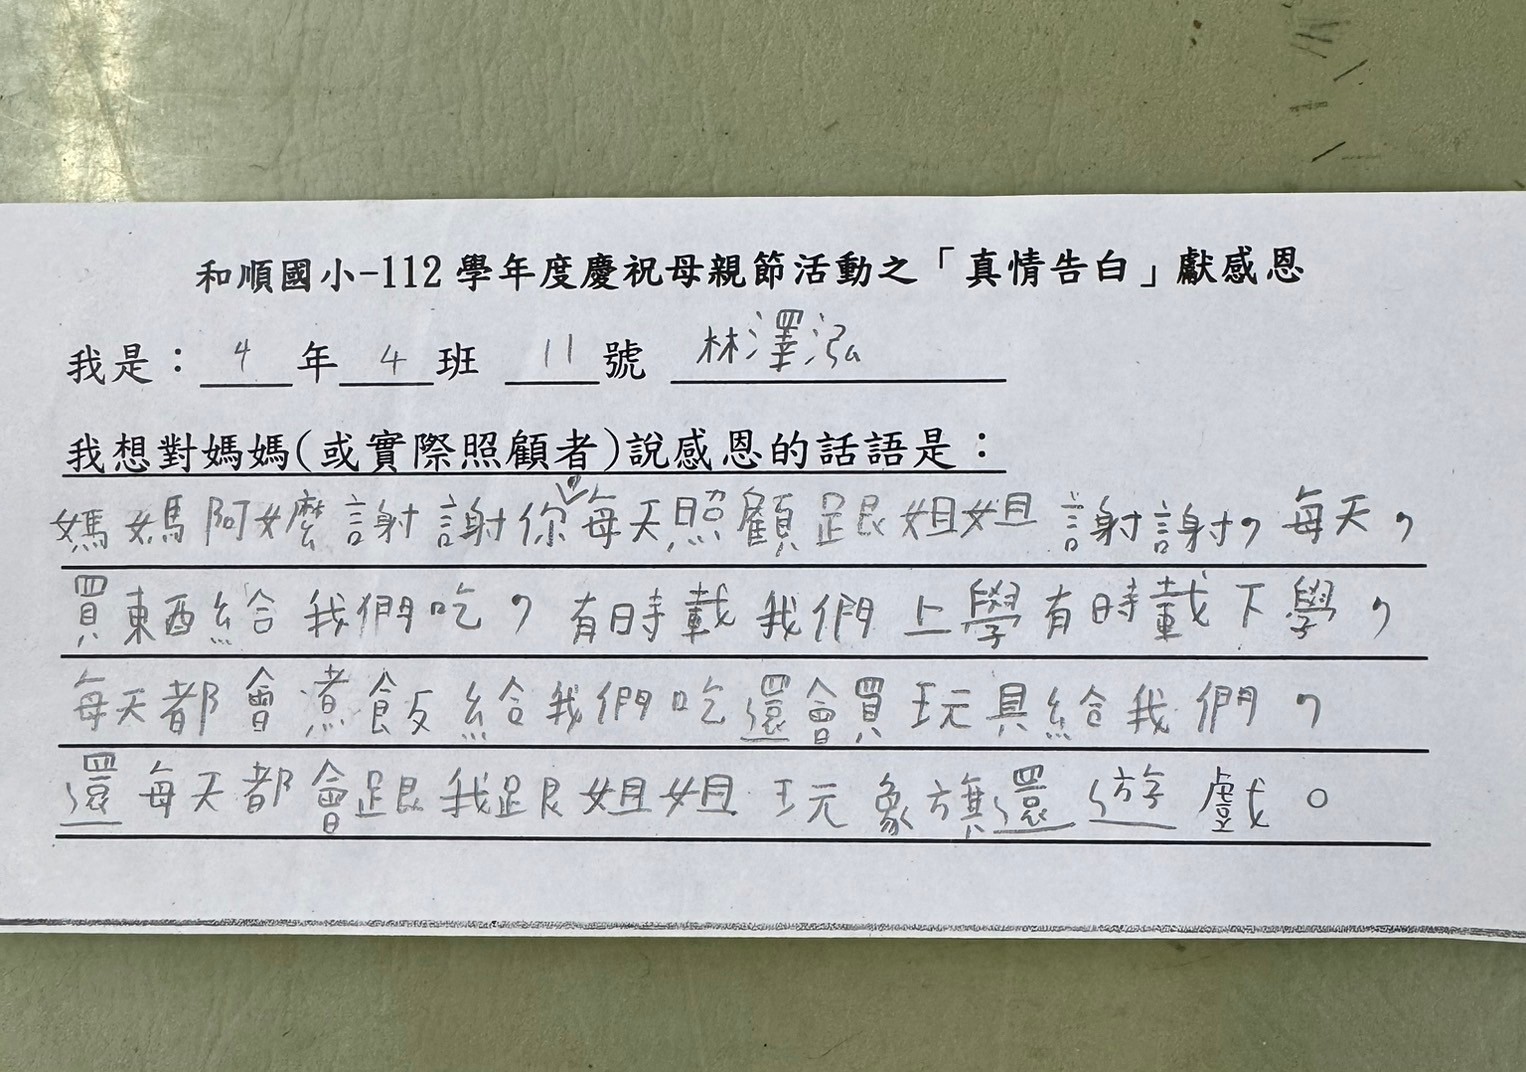 和順國小-112學年度慶祝母親節活動之「真情告白」獻感恩
我是：4年4班 11號 林澤泓
我想對媽媽(或實際照顧者)說感恩的話語是：
媽媽阿嬤謝謝你，每天照顧跟姐姐謝謝，每天，
買東西給我們吃，有時載我們上學有時載下學，
每天都會煮飯給我們吃還會買玩具給我們，
還每天都會跟我跟姐姐玩象旗還遊戲。